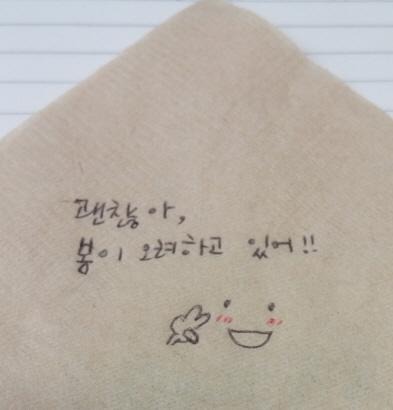 괜찮아,
봄이 오려하고 있어!!